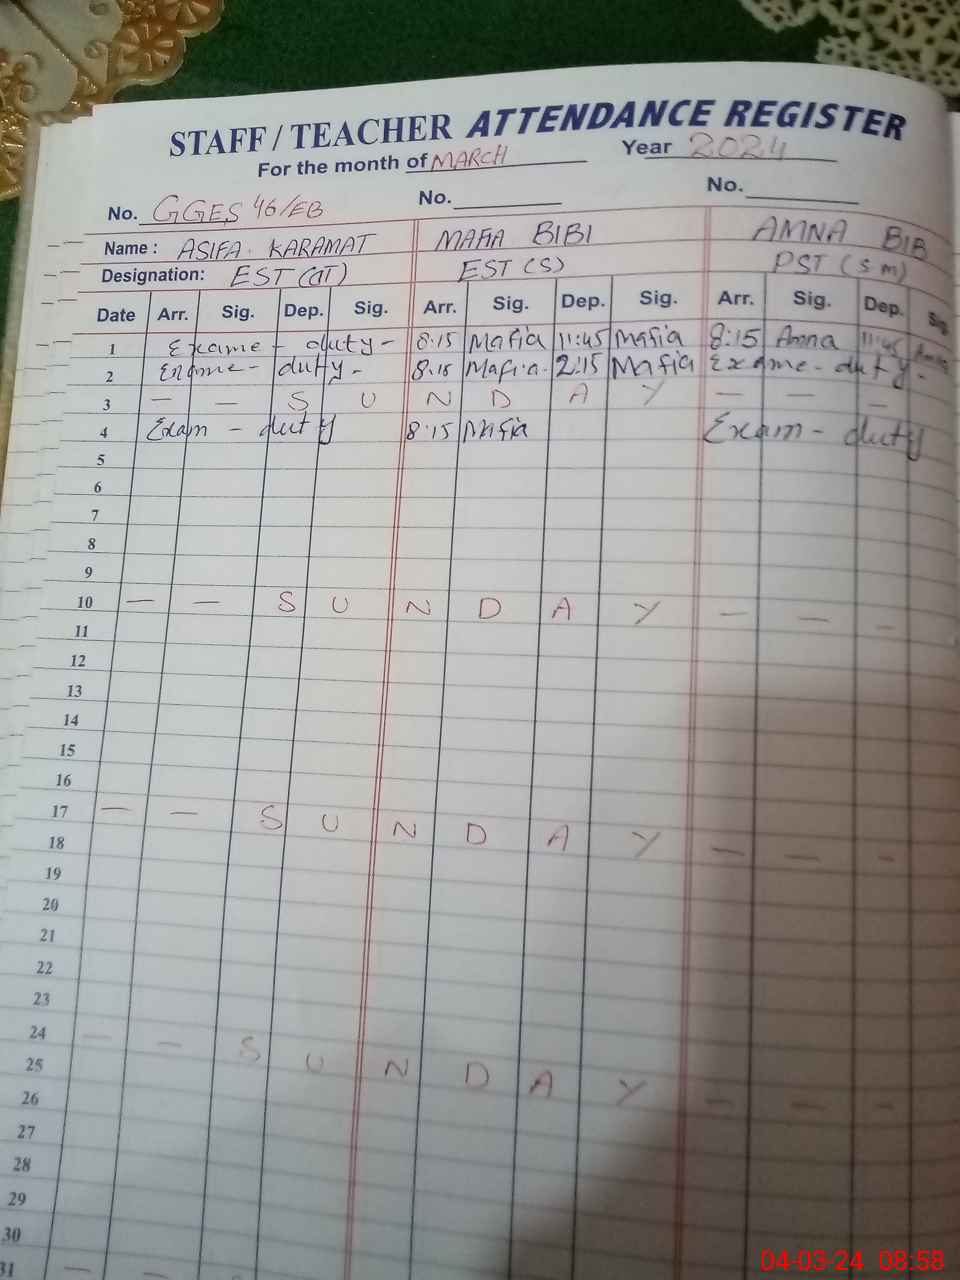 STAFF / TEACHER ATTENDANCE REGISTER
For the month of MARCH Year 2024
No. GGES 46/EB No. No.
Name : ASIFA KARAMAT MAFIA BIBI AMNA BIB
Designation: EST (AT) EST (S) PST (S.M)
Date Arr. Sig. Dep. Sig. Arr. Sig. Dep. Sig. Arr. Sig. Dep. Sig
1 Exame - duty - 8:15 Mafia 11:45 Mafia 8:15 Amna 11:45 Amna
2 Exame - duty - 8:15 Mafia 2:15 Mafia Exame - duty -
3 — — S U N D A Y — — —
4 Exam - duty 8:15 Mafia Exam - duty
5
6
7
8
9
10 — — S U N D A Y — — —
11
12
13
14
15
16
17 — — S U N D A Y — — —
18
19
20
21
22
23
24 — — S U N D A Y — — —
25
26
27
28
29
30
31 — —
04-03-24 08:58